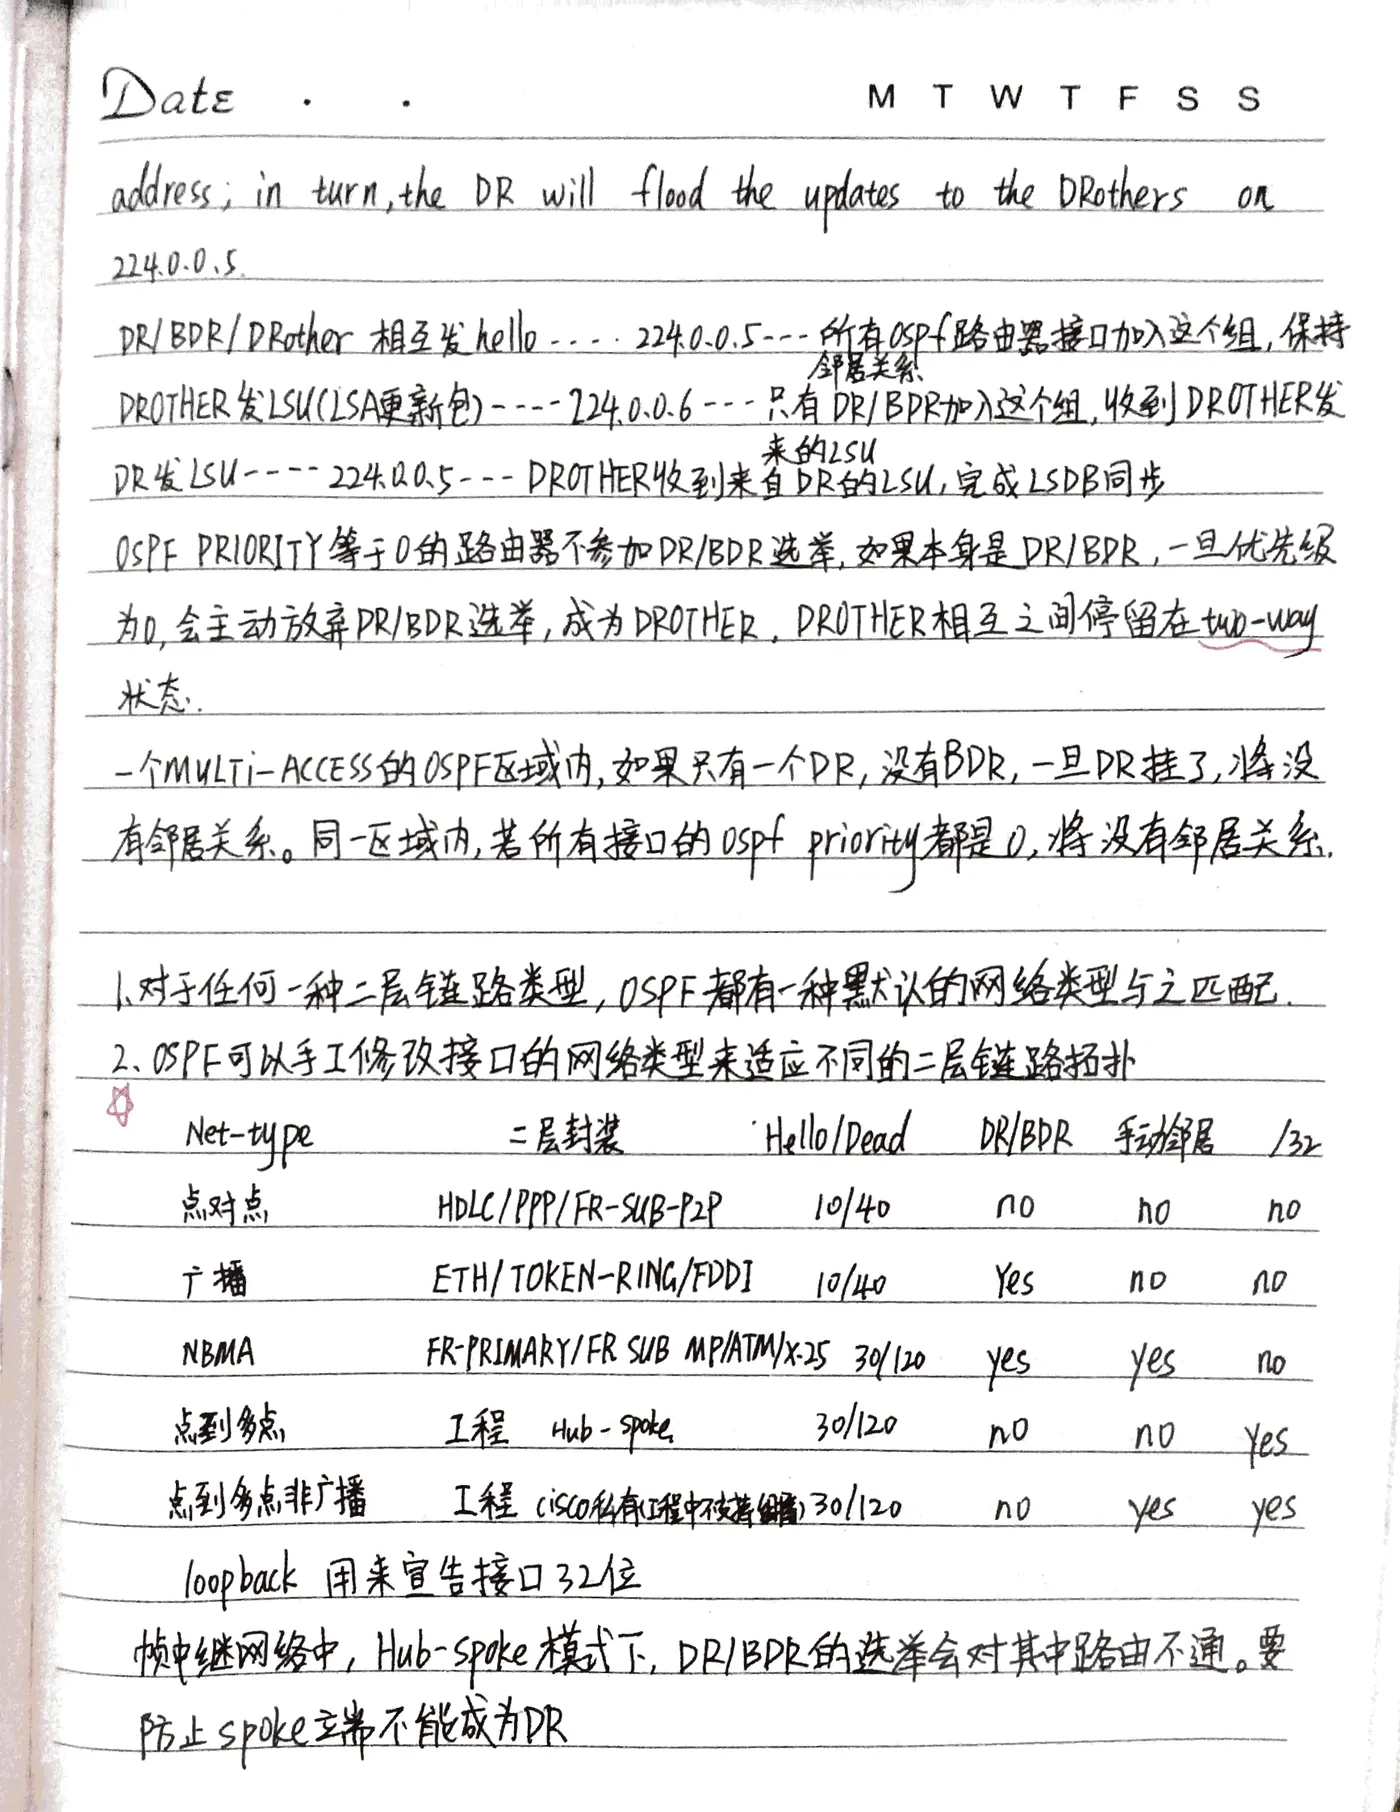 Date . . M T W T F S S
address; in turn, the DR will flood the updates to the DRothers on
224.0.0.5.
DR/BDR/DRother 相互发hello ---- 224.0.0.5--- 所有OSPf路由器接口加入这个组,保持
邻居关系
DROTHER发LSU(LSA更新包)---- 224.0.0.6 --- 只有DR/BDR加入这个组,收到DROTHER发
来的LSU
DR发LSU---- 224.0.0.5--- DROTHER收到来自DR的LSU,完成LSDB同步
OSPF PRIORITY等于0的路由器不参加DR/BDR选举,如果本身是DR/BDR,一旦优先级
为0,会主动放弃DR/BDR选举,成为DROTHER. DROTHER相互之间停留在two-way
状态.
一个MULTi-ACCESS的OSPF区域内,如果只有一个DR,没有BDR,一旦DR挂了,将没
有邻居关系。同一区域内,若所有接口的ospf priority都是0,将没有邻居关系.
1.对于任何一种二层链路类型,OSPF都有一种默认的网络类型与之匹配.
2、OSPF可以手工修改接口的网络类型来适应不同的二层链路拓扑
Net-type 二层封装 Hello/Dead DR/BDR 手动邻居 /32
点对点 HDLC/PPP/FR-SUB-P2P 10/40 no no no
广播 ETH/TOKEN-RING/FDDI 10/40 Yes no no
NBMA FR-PRIMARY/FR SUB MP/ATM/X.25 30/120 yes yes no
点到多点 工程 Hub-spoke 30/120 no no yes
点到多点非广播 工程 (cisco私有工程中不支持组播) 30/120 no yes yes
loopback 用来宣告接口32位
帧中继网络中, Hub-spoke模式下, DR/BDR的选举会对其中路由不通。要
防止spoke端不能成为DR